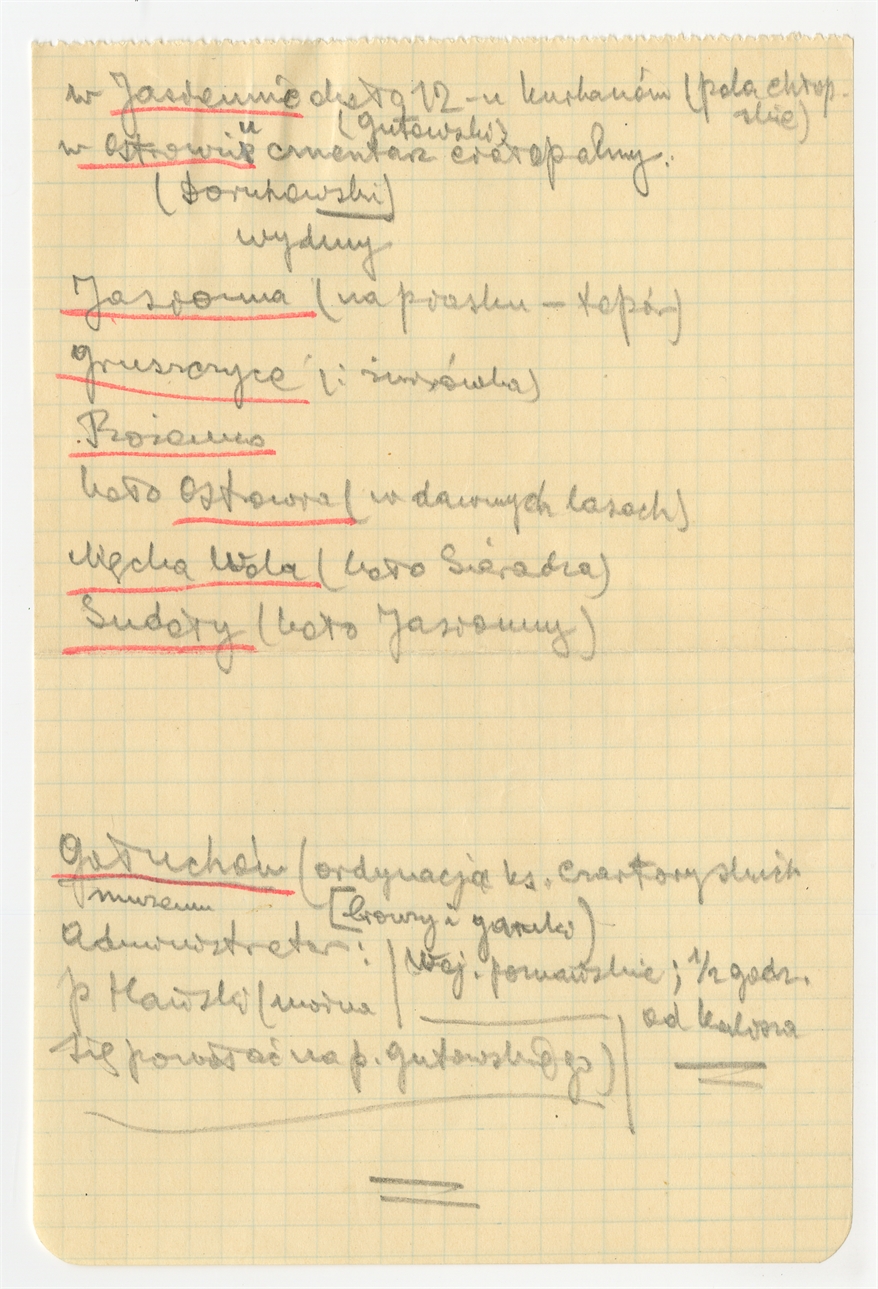 w Jasiennie około 12-u kurhanów (pola chłop-
skie)
(Gutowski)
w Ostrowiu cmentarz ciałopalny.
(Doruchowski)
wydmy
Jasionna (na piasku – topór)
Gruszczyce (: żużówka)
Rożenno
koło Ostrowa (w dawnych lasach)
Męcka Wola (koło Sieradza)
Sudoły (koło Jasionny)
Gołuchów (ordynacja ks. Czartoryskich
muzeum
[bronzy i garnki)
Administrator:
woj. poznańskie; 1/2 godz.
od Kalisza
p Hański (można
się powołać na p. Gutowskiego)